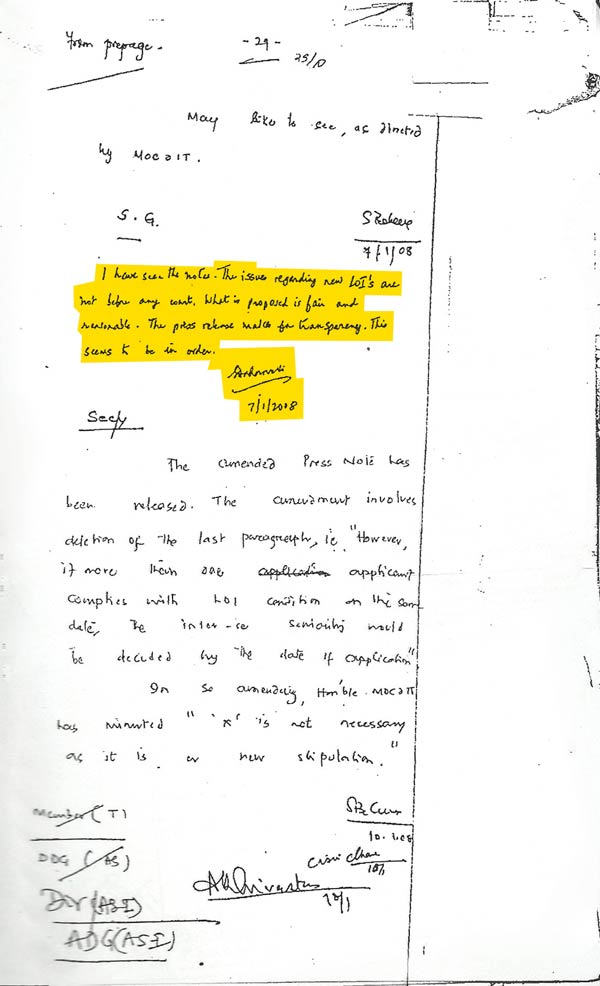 From prepage.
- 29 -
25/D
May like to see, as directed
by MOC&IT.
S.G.
7/1/08
I have seen the notes. The issues regarding new LOI's are
not before any court. What is proposed is fair and
reasonable. The press release makes for transparency. This
seems to be in order.
7/1/2008
Secy
The amended Press Note has
been released. The amendment involves
deletion of the last paragraph, ie "However,
if more than one application applicant
complies with LOI condition on the same
date, the inter-se seniority would
be decided by the date of application"
In so amending, Hon'ble MOC&IT
has minuted " 'x' is not necessary
as it is new stipulation."
Member (T)
10.1.08
DDG (AS)
10/1
12/1
Dir (AS-I)
ADG (AS-I)